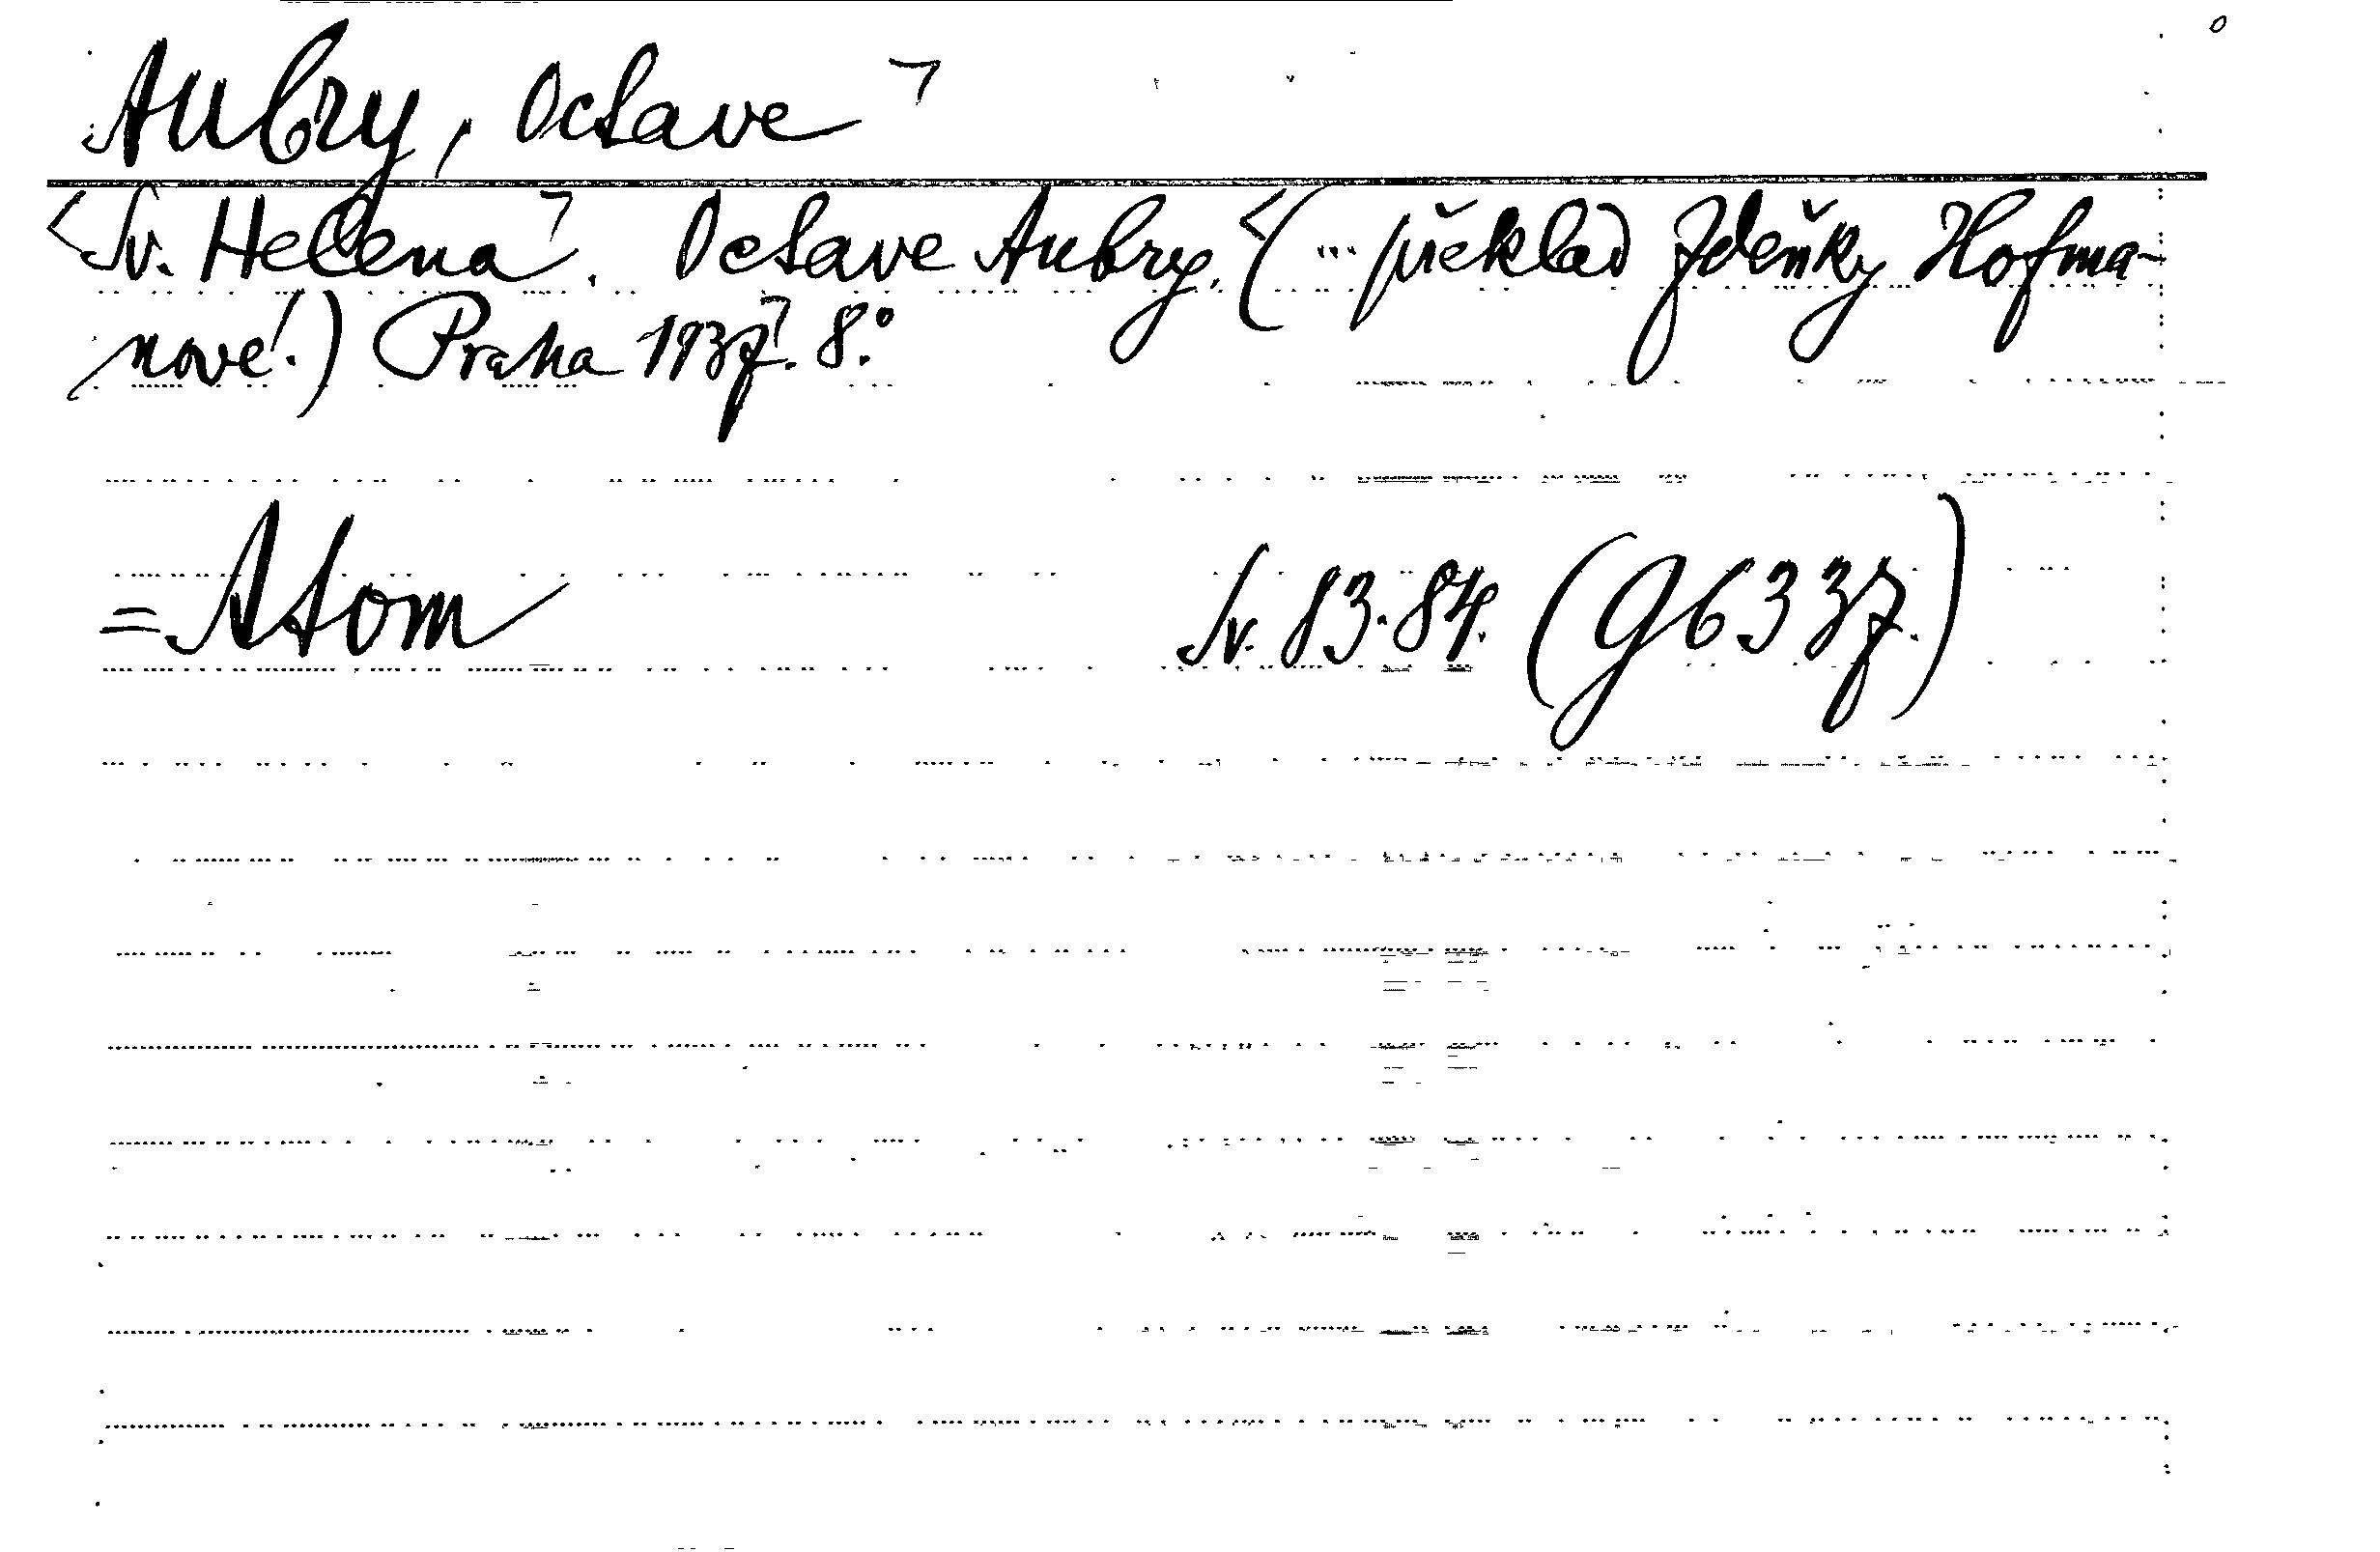 Aubry, Octave ⌝
<Sv. Helena⌝. Octave Aubry.<(... překlad Zdeňky Hofma-
nové.) Praha 1937⌝. 8.°
= Atom Sv. 83.-84. (G 6337.)